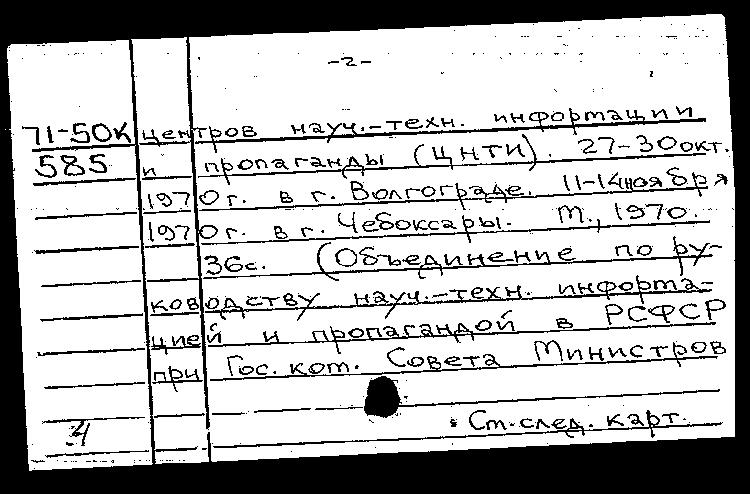 -2-
71-50К центров науч.-техн. информации
585 и пропаганды (ЦНТИ). 27-30 окт.
1970г. в г. Волгограде. 11-14 ноября
1970г. в г. Чебоксары. М., 1970.
36с. (Объединение по ру-
ководству науч.-техн. информа-
цией и пропагандой в РСФСР
при Гос. ком. Совета Министров
См. след. карт.